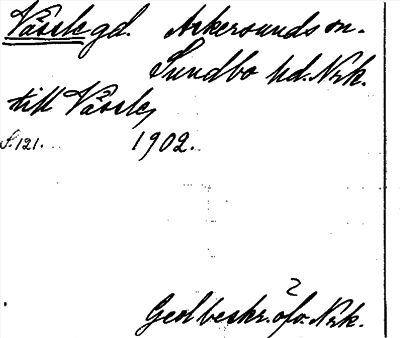 Vässle gd. Askersunds sn.
Sundbo hd. Nrk.
till Vässle,
S. 121. 1902.
2
Geol beskr. öfv. Nrk.